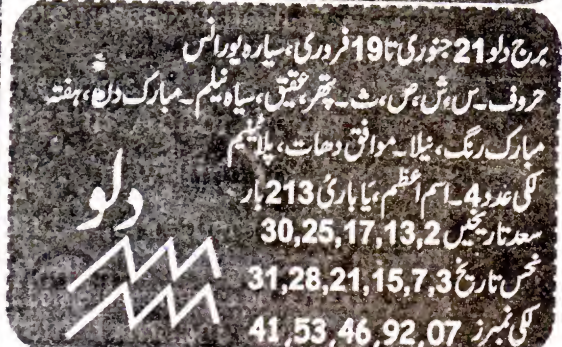 برج دلو 21 جنوری تا 19 فروری، سیارہ یورانس
حروف۔س،ش،ص،ث۔ پتھر، عقیق، سیاہ نیلم۔ مبارک دن، ہفتہ
مبارک رنگ، نیلا۔ موافق دھات، پلاٹینیم
لکی عدد 4۔ اسم اعظم، یَا بَارِیُٔ 213 بار
سعد تاریخیں 2،13،17،25،30
نحس تاریخ 3،7،15،21،28،31
لکی نمبرز 07،92،46،53،41
دلو